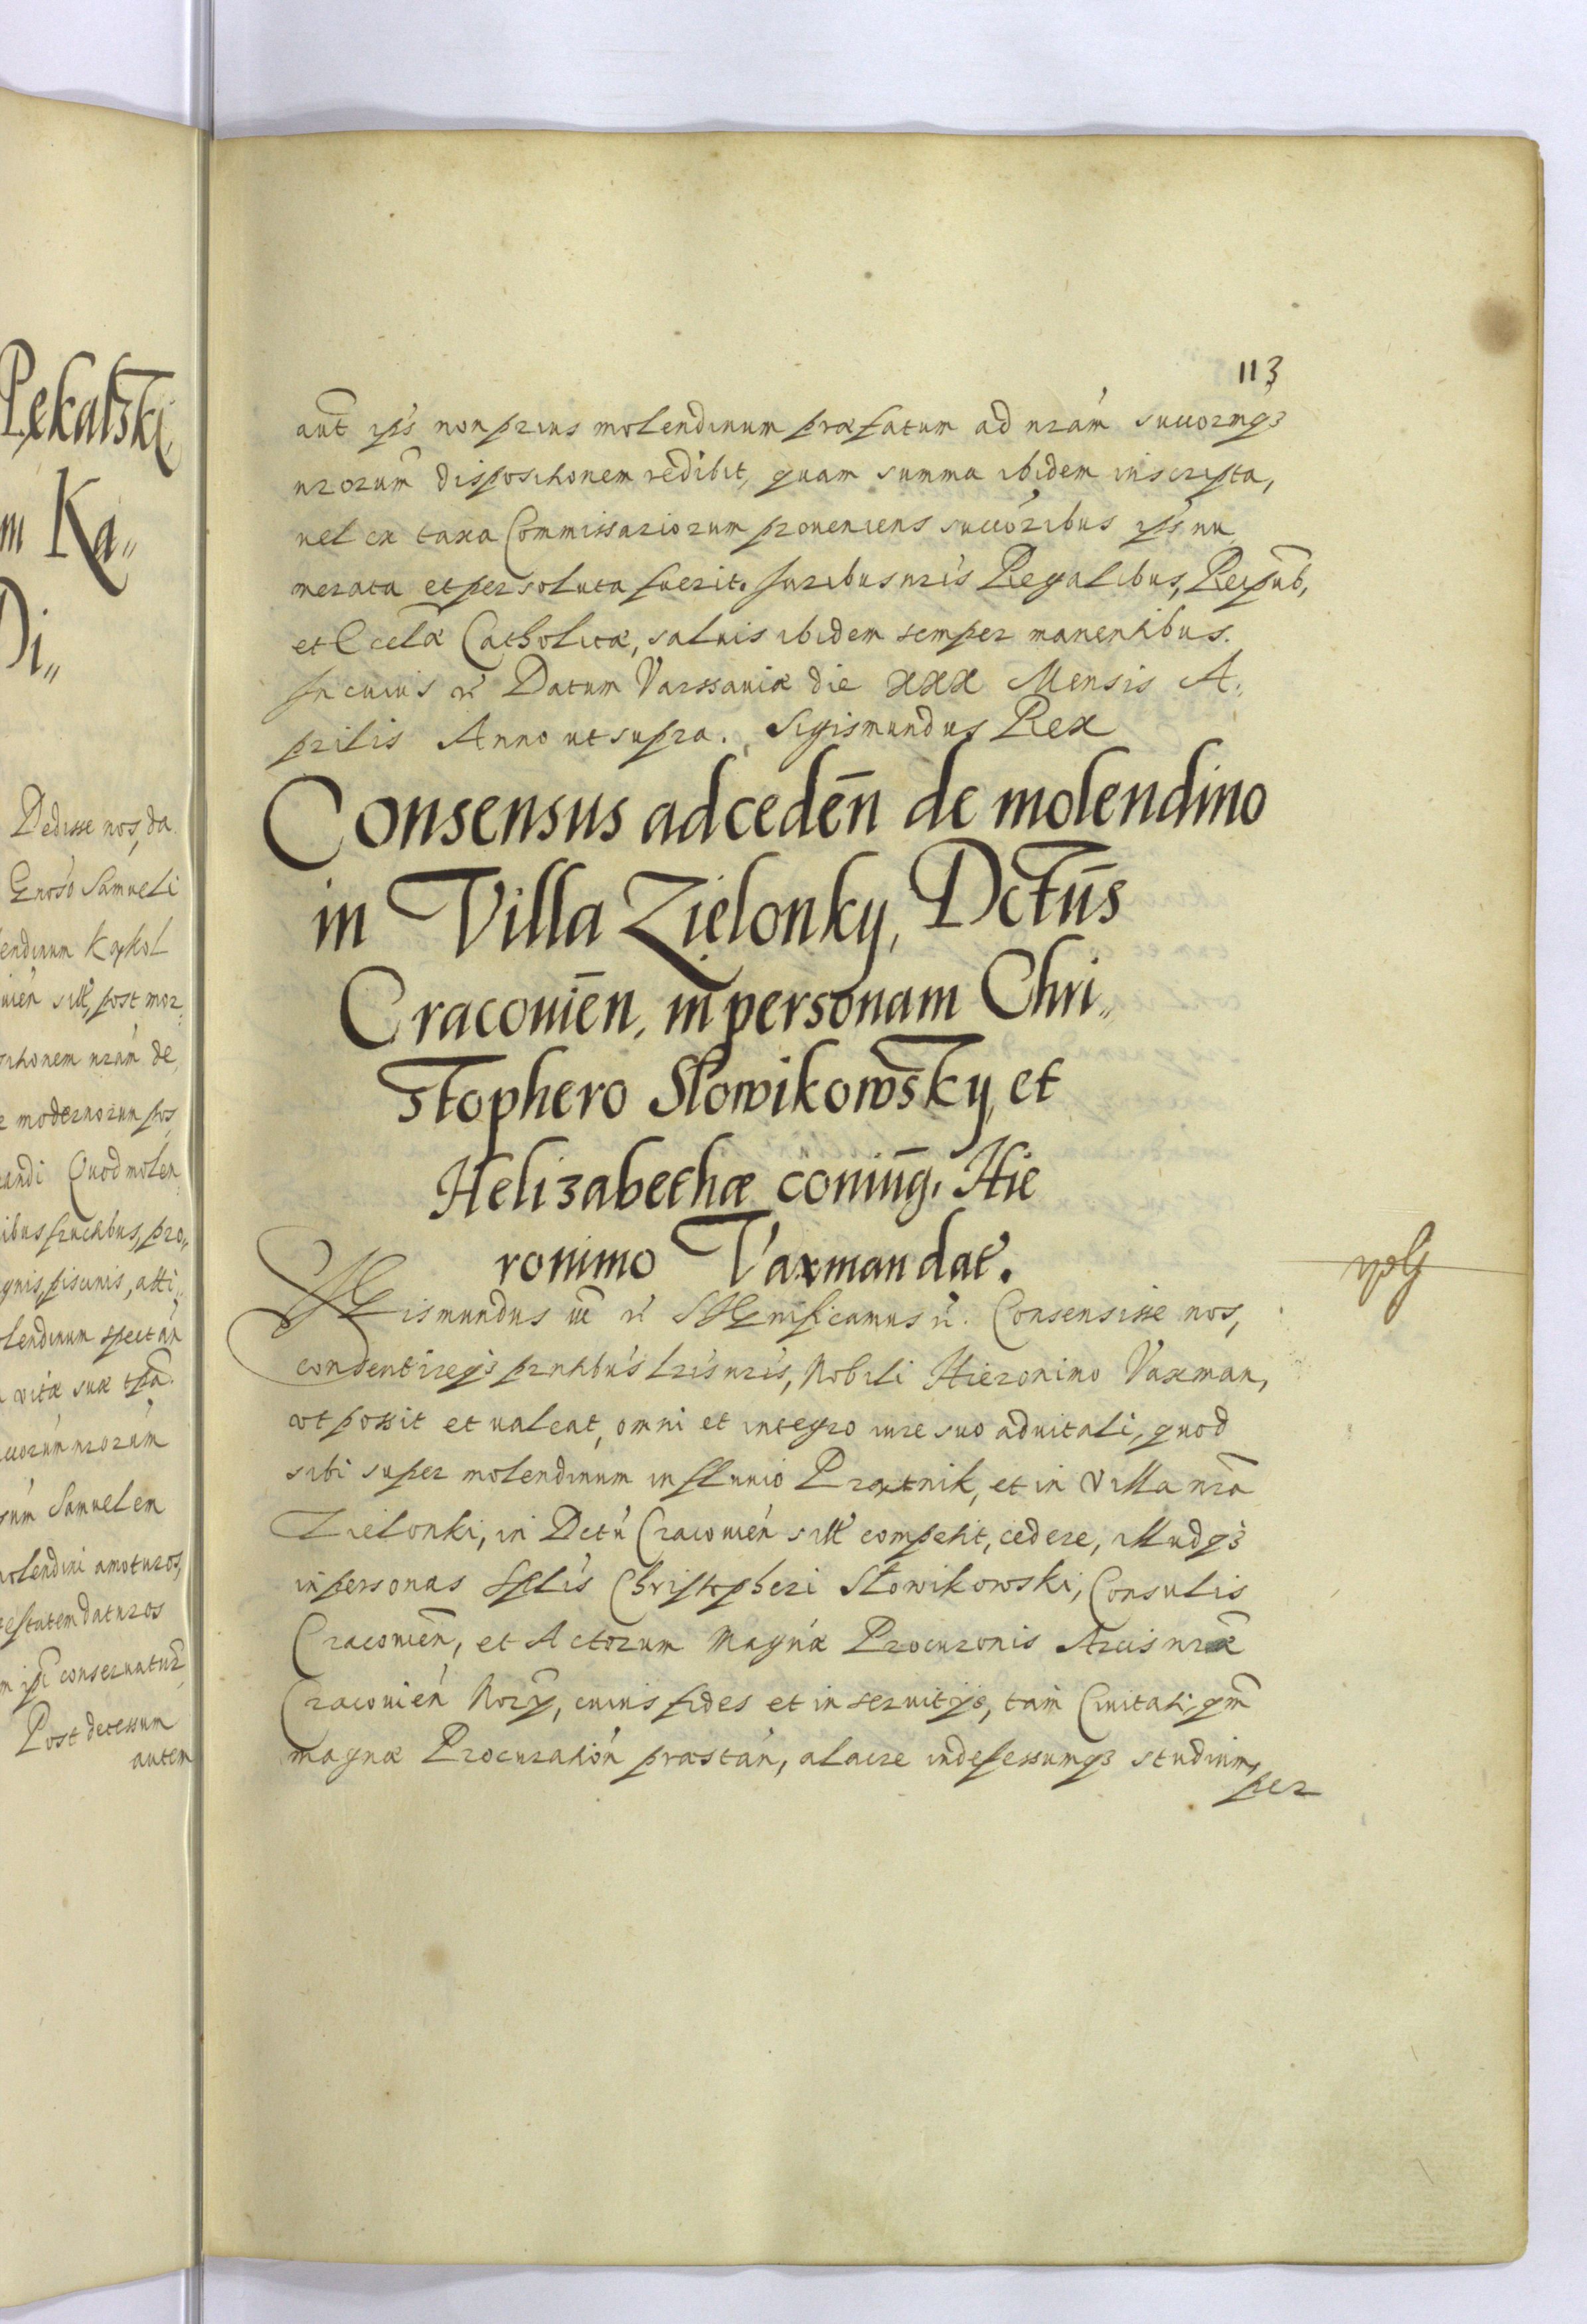 Pękalski
m Ka„
Di„
Dedisse nos, da
Gnoso Samueli
lendinum Kąkol
uien sitt, post mor
sitionem nram de
modernorum pos
andi Quod molen
ibus fructibus, pro„
gnis, piscinis, atti„
olendinum spectan
vitæ suæ tpa.
uccorum nrorum
sum Samuelem
molendini amoturos,
testatem daturos
m ipi conseruatur,
Post decessum
autem
113
aut ips non prius molendinum præfatum ad nram succorumqꝫ
nrorum dispositionem redibit, quam summa ibidem inscripta,
uel ex taxa Commissariorum proueniens succoribus ips nu
merata et persoluta fuerit. Juribus nris Regalibus, Reipub,
et Eccelæ Catholicæ, saluis ibidem semper manentibus.
In cuius rei Datum Varssauiæ die XXX Mensis A„
prilis Anno ut supra. Sigismundus Rex
Consensus ad cedēn de molendino
in Villa Zielonky, Dctūs
Cracouiēn, in personam Chri„
stophero Słowikowsky, et
Helizabethæ coniug, Hie
ronimo Vaxman dat.
Sigismundus iii rx Significamus rc. Consensisse nos,
consentireqꝫ prntibus lris nris, Nobili Hieronimo Vaxman,
vt possit et ualeat, omni et integro iure suo aduitali, quod
sibi super molendinum in fluuio Prątnik, et in villa nra
Zielonki, in Dctu Cracouien sitt competit, cedere, illudqꝫ
in personas Splis Christopheri Słowikowski, Consulis
Cracouien, et Actorum Magnæ Procuronis Arcis nræ
Cracouien Nory, cuius fides et in seruitijs, tam Ciuitati, qm
magnæ Procuration præstan, alacre indefessumqꝫ studium,
per